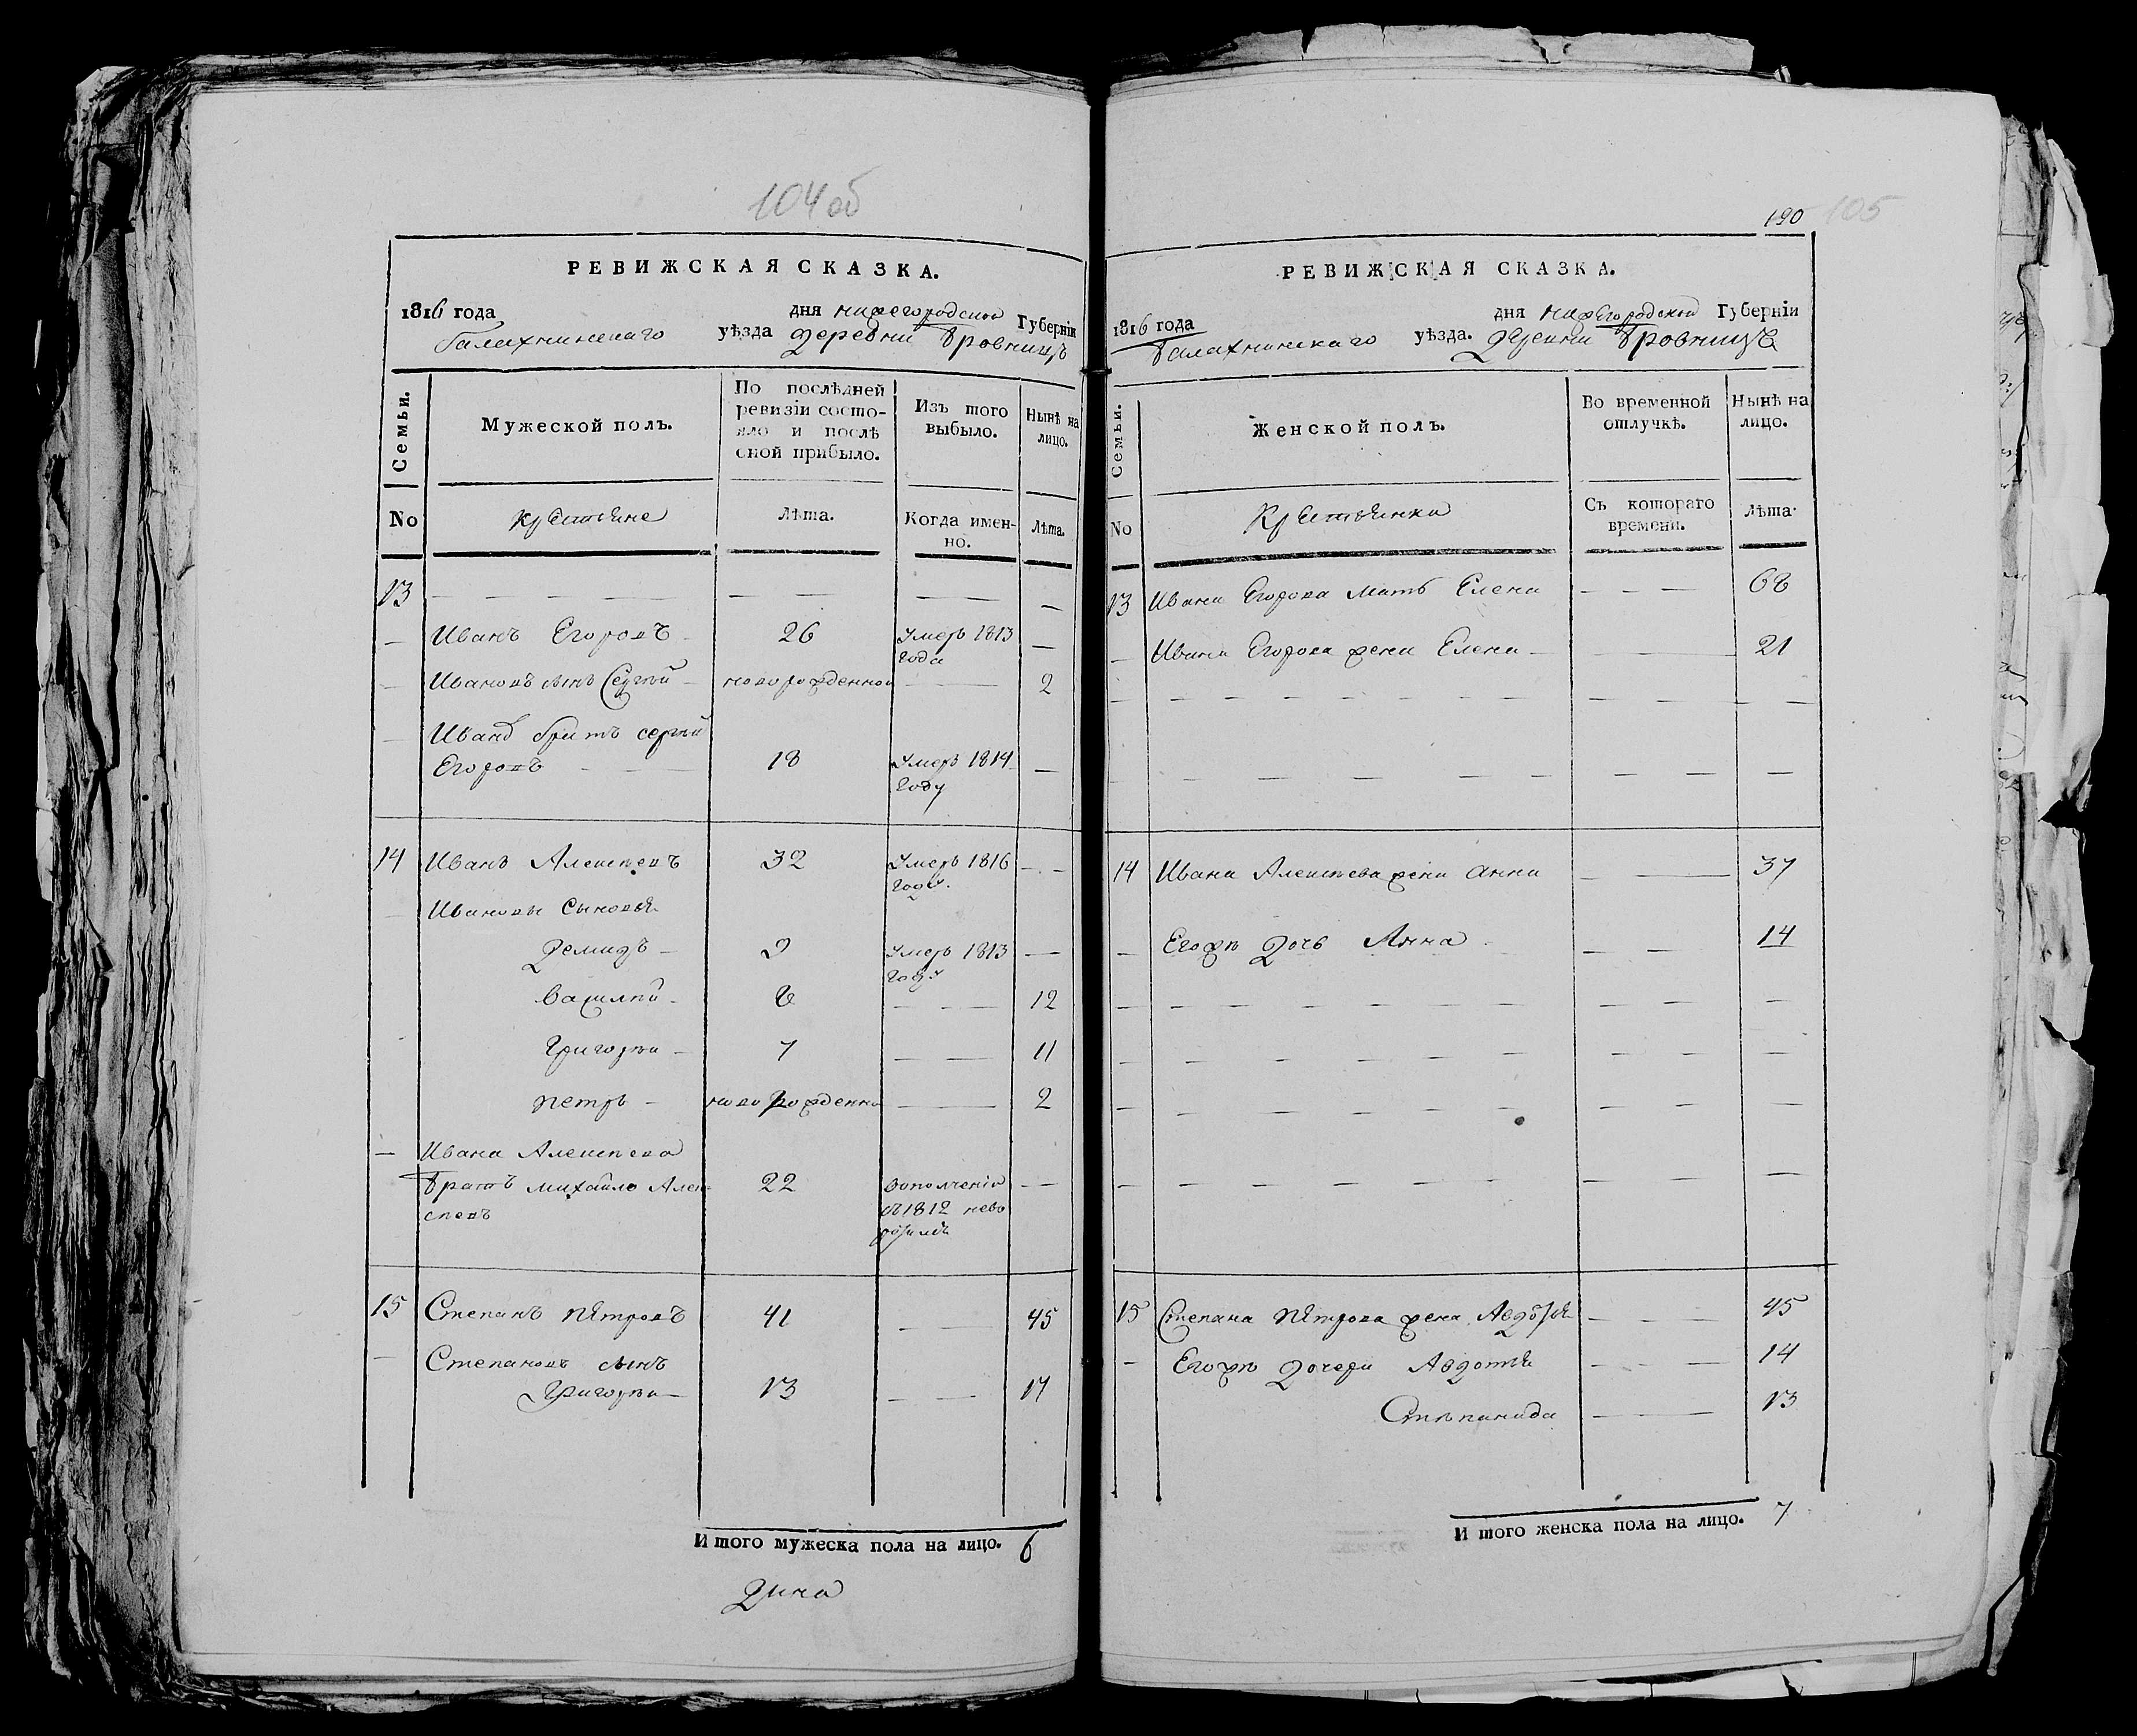 104 об
РЕВИЖСКАЯ СКАЗКА.
1816 года дня нижегородской Губерніи
балахнинскаго уѣзда деревни Бровницъ
Семьи.
Мужеской полъ.
По послѣдней
ревизіи состо-
яло и послѣ
оной прибыло.
Изъ того
выбыло.
Нынѣ на
лицо.
No
крестьяне
Лѣта.
Когда имен-
но.
Лѣта.
13 — — — — — — — — —
— Иванъ Егоровъ 26 умеръ 1813 —
года
— Ивановъ сынъ Сергѣй — новорожденной — 2
— Ивана братъ сергѣй
Егоровъ — — 18 умеръ 1814 —
году
14 Иванъ Алексѣевъ 32 умеръ 1816 — -
году.
— Ивановы сыновья
Демидъ — 9 умеръ 1813 —
году
василѣй - 8 — - — 12
григорѣи — 7 — — 11
петръ — новорожденно — 2
— Ивана Алексѣева
братъ михайло Алек- 22 ополченіи —
сѣевъ в 1812 нево
15 Степанъ петровъ 41 — — 45
— Степановъ сынъ
григорѣи — 13 — — 17
И того мужеска пола на лицо. 6
190 105
РЕВИЖСКАЯ СКАЗКА.
1816 года дня нижегородской Губерніи
балахнинскаго уѣзда. деревни бровницъ
Семьи.
Женской полъ.
Во временной
отлучкѣ.
Нынѣ на
лицо.
No
крестьянки
Съ котораго
времени.
Лѣта.
13 Ивана Егорова мать Елена — - — 68
— Ивана Егорова жена Елена — — 21
14 Ивана Алексѣева жена анна — — 37
— Егожъ дочь Анна — — 14
15 Степана петрова жена Авдотья — - — 45
— Егожъ дочери Авдотья — - — 14
Стѣпанида — 13
И того женска пола на лицо. 7